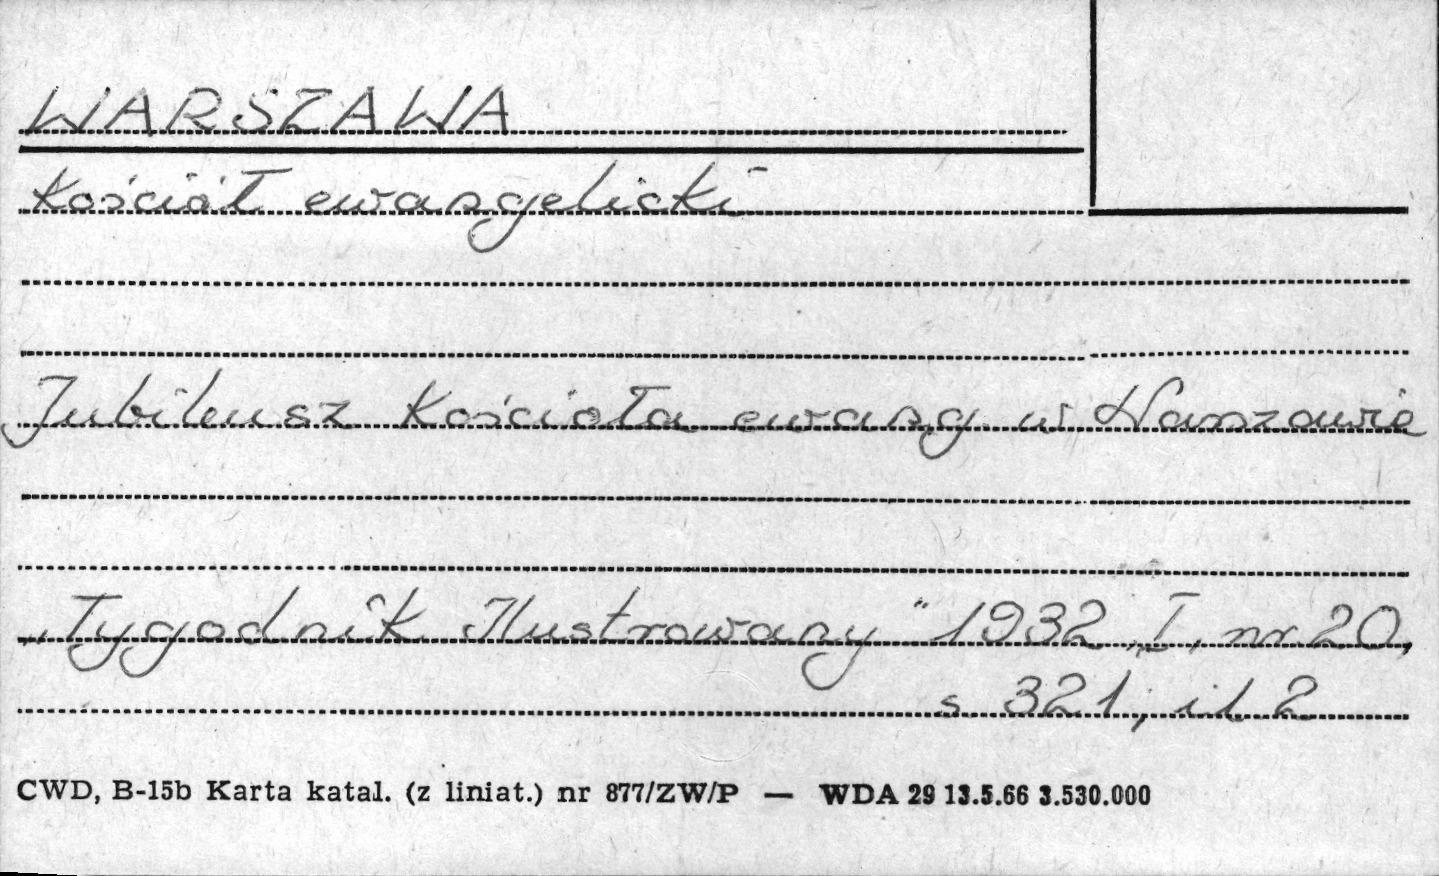 WARSZAWA
Kościół ewangelicki
Jubileusz Kościoła ewang. w Warszawie
„Tygodnik Ilustrowany" 1932, I, nr 20,
s. 321, il. 2
CWD, B-15b Karta katal. (z liniat.) nr 877/ZW/P — WDA 29 13.5.66 3.530.000